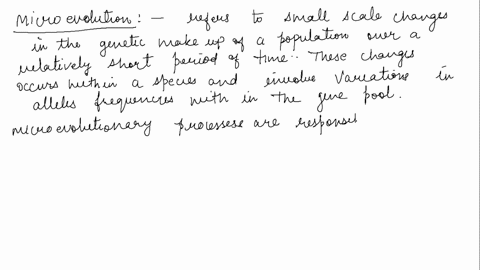 Microevolution: - refers to small scale changes
in the genetic make up of a population over a
relatively short period of time. These changes
occurs within a species and involve variations in
alleles frequencies with in the gene pool.
microevolutionary processese are respons